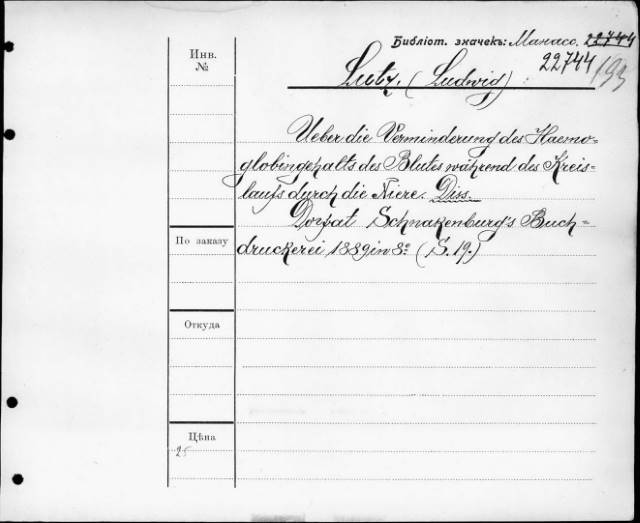 Библіот. значекъ: Манасс. 22744
22744/93
Инв.
№
Lutz. (Ludwig)
Ueber die Verminderung des Haemo-
globingehalts des Blutes während des Kreis-
laufs durch die Niere. Diss.
Dorpat Schnakenburg's Buch-
druckerei 1889 in 8º (S. 19.)
По заказу
Откуда
Цѣна
25